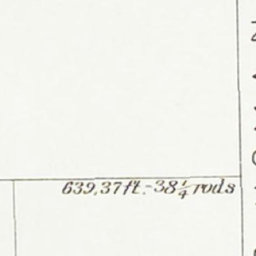 639.37 ft. - 38 1/4 rods